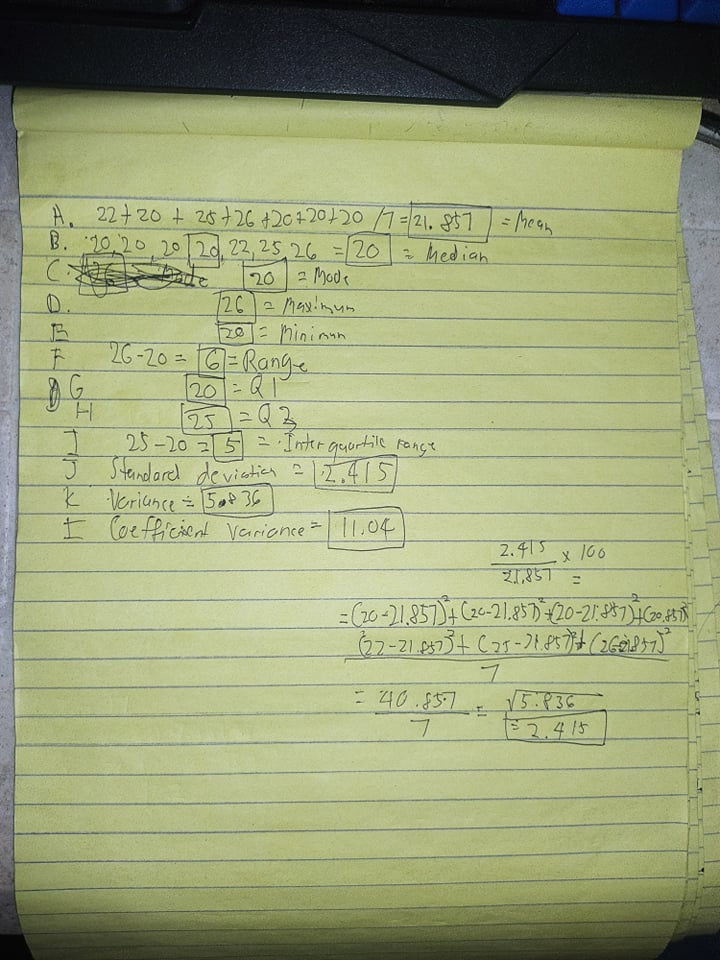 A. 22+20 + 25+26+20+20+20 /7 = 21.857 = Mean
B. 20, 20, 20, 20, 22, 25, 26 = 20 = Median
C. 20 = Mode
D. 26 = Maximum
E 20 = Minimum
F 26-20 = 6 = Range
G 20 = Q1
H 25 = Q3
I 25-20 = 5 = Interquartile range
J Standard deviation = 2.415
K Variance = 5.836
I Coefficient variance = 11.04
2.415 x 100
21.857 =
= (20-21.857)² + (20-21.857)² + (20-21.857)² + (20.857)²
(22-21.857)² + (25-21.857)² + (26-21.857)²
7
= 40.857 = √5.836
7 = 2.415